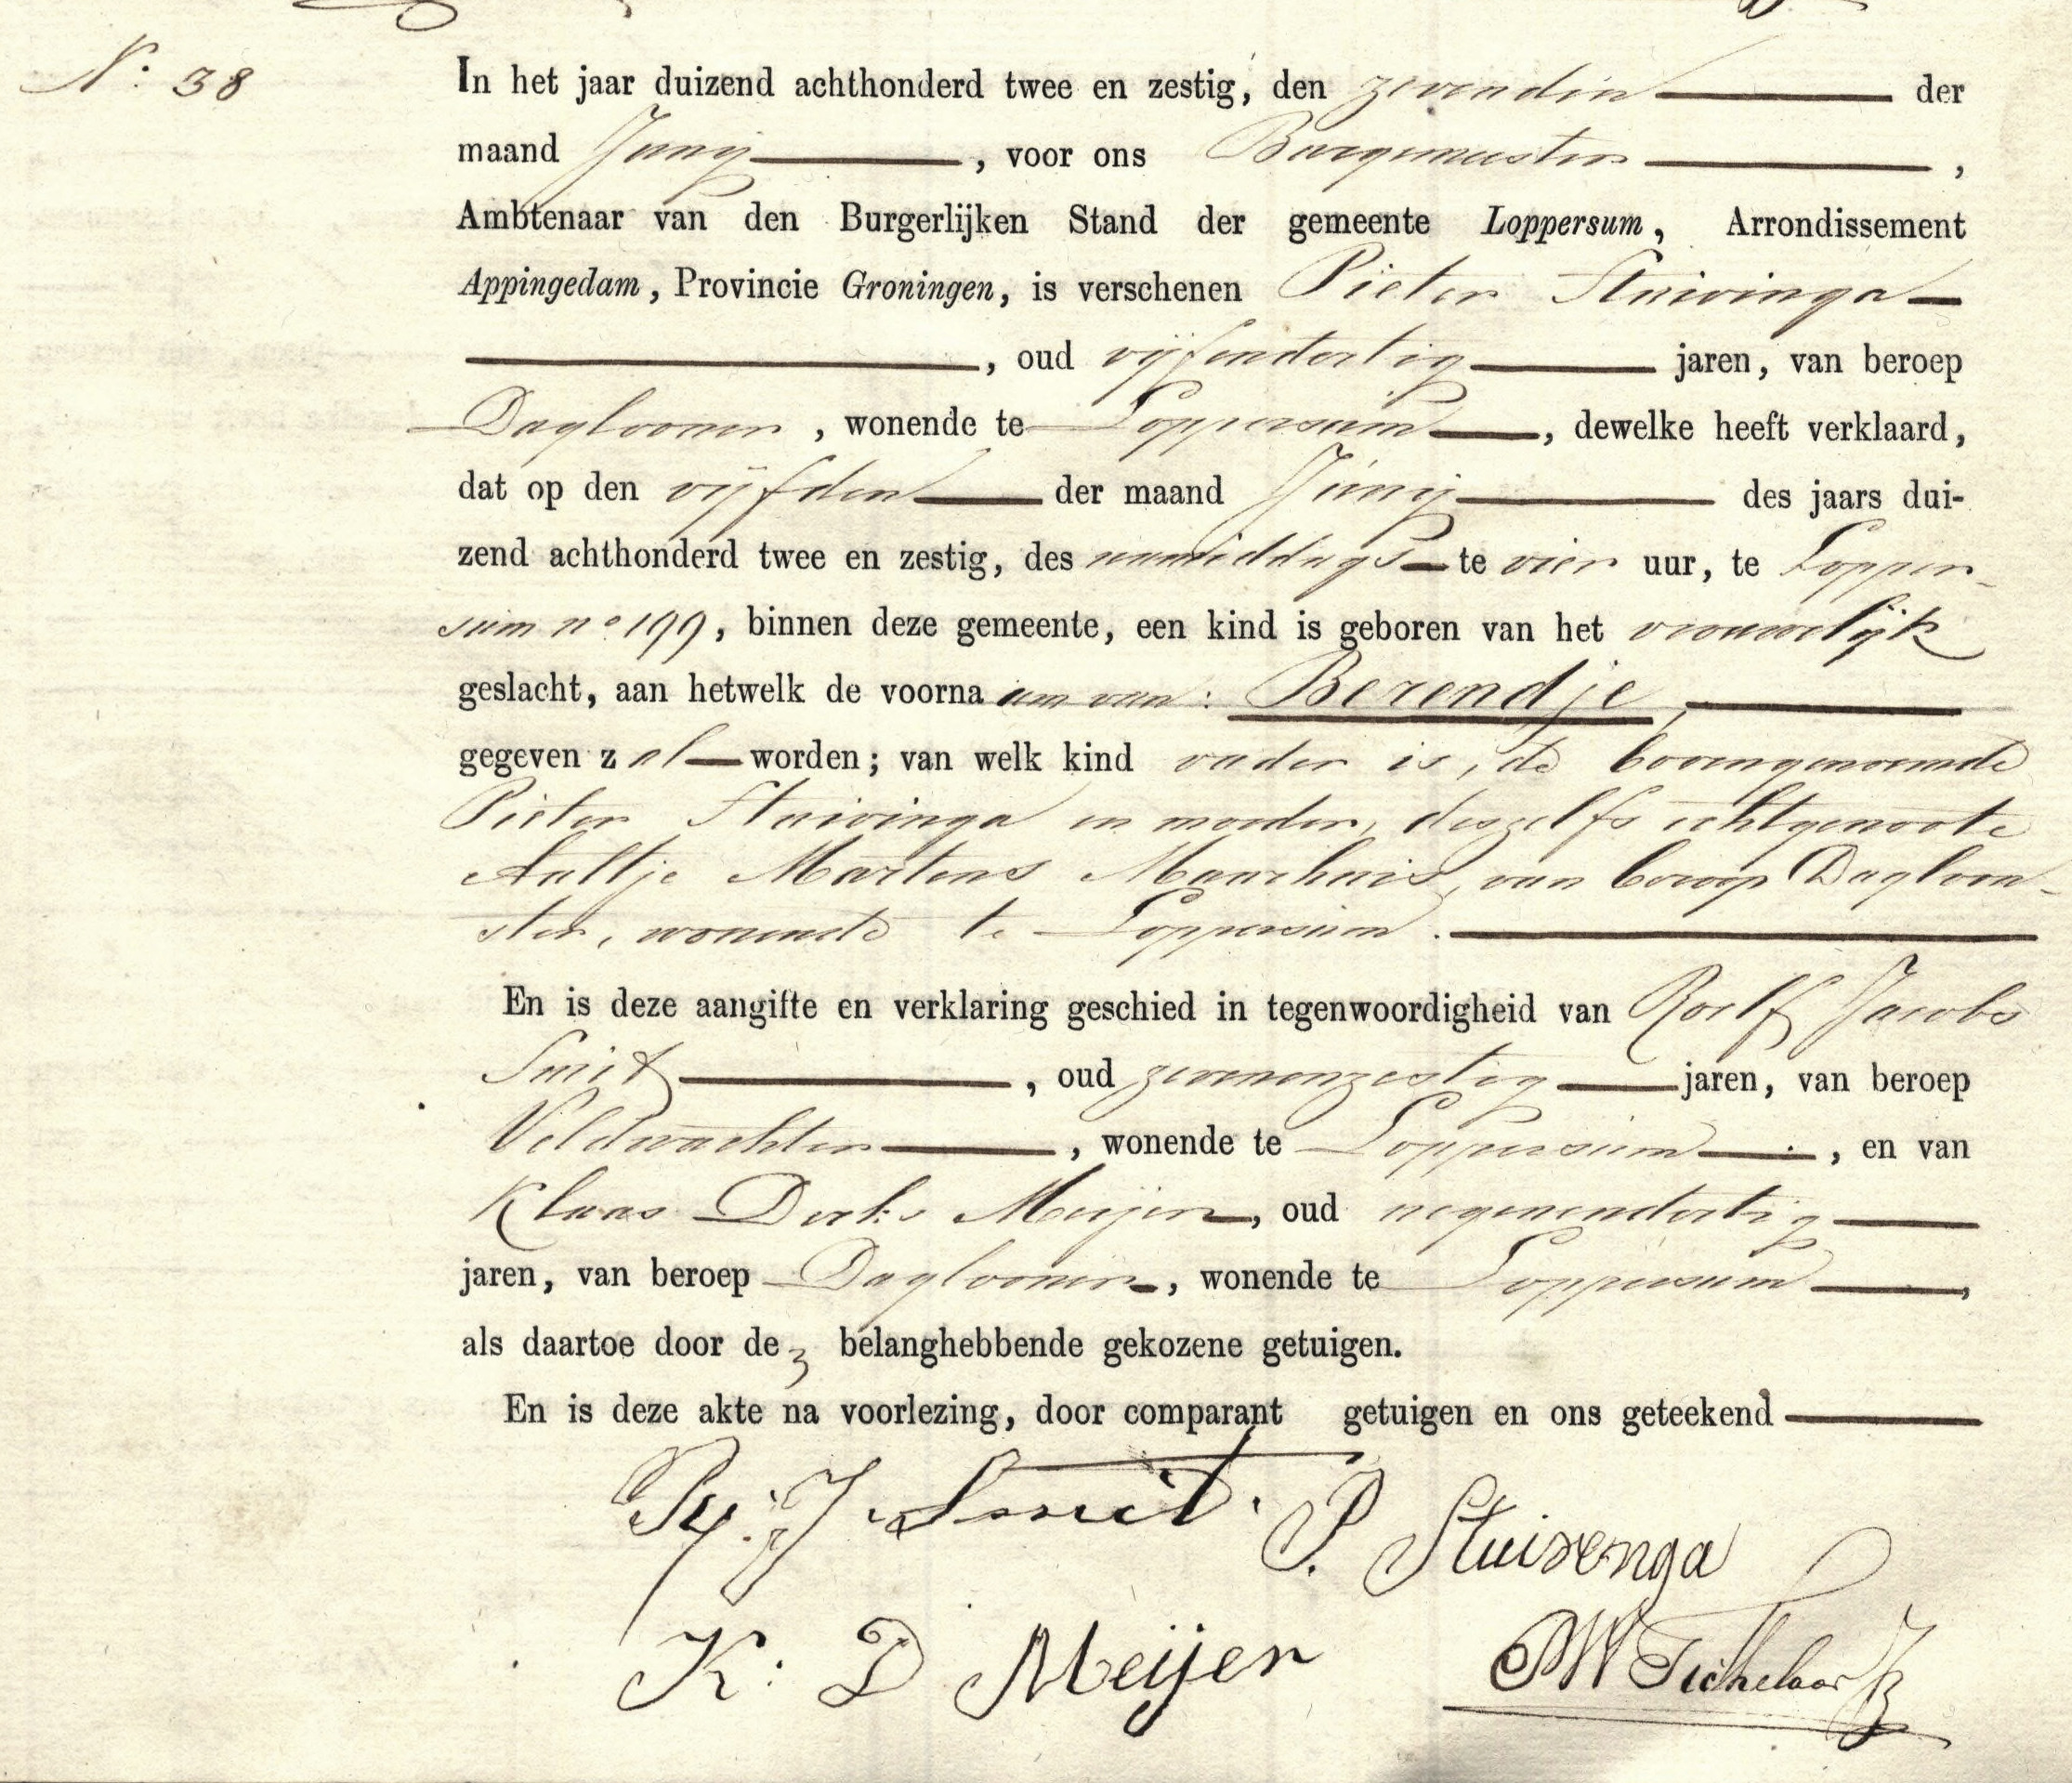 N: 38
In het jaar duizend achthonderd twee en zestig, den zevenden der
maand Junij, voor ons Burgemeester,
Ambtenaar van den Burgerlijken Stand der gemeente Loppersum, Arrondissement
Appingedam, Provincie Groningen, is verschenen Pieter Stuivinga
, oud vijfendertig jaren, van beroep
Daglooner, wonende te Loppersum, dewelke heeft verklaard,
dat op den vijfden der maand Junij des jaars dui-
zend achthonderd twee en zestig, des namiddags te vier uur, te Lopper-
sum no 199, binnen deze gemeente, een kind is geboren van het vrouwelijk
geslacht, aan hetwelk de voornaam van: Berendje,
gegeven zal worden; van welk kind vader is, de bovengenoemde
Pieter Stuivinga en moeder, deszelfs echtgenoote
Aaltje Martens Maarhuis, van beroep Dagloon-
ster, wonende te Loppersum.
En is deze aangifte en verklaring geschied in tegenwoordigheid van Roelf Jacobs
Smit, oud zevenenzestig jaren, van beroep
Veldwachter, wonende te Loppersum, en van
Klaas Derks Meijer, oud negenendertig
jaren, van beroep Daglooner, wonende te Loppersum,
als daartoe door dez belanghebbende gekozene getuigen.
En is deze akte na voorlezing, door comparant getuigen en ons geteekend
J Smit. P. Stuivenga
K: D Meijer Tichelaar